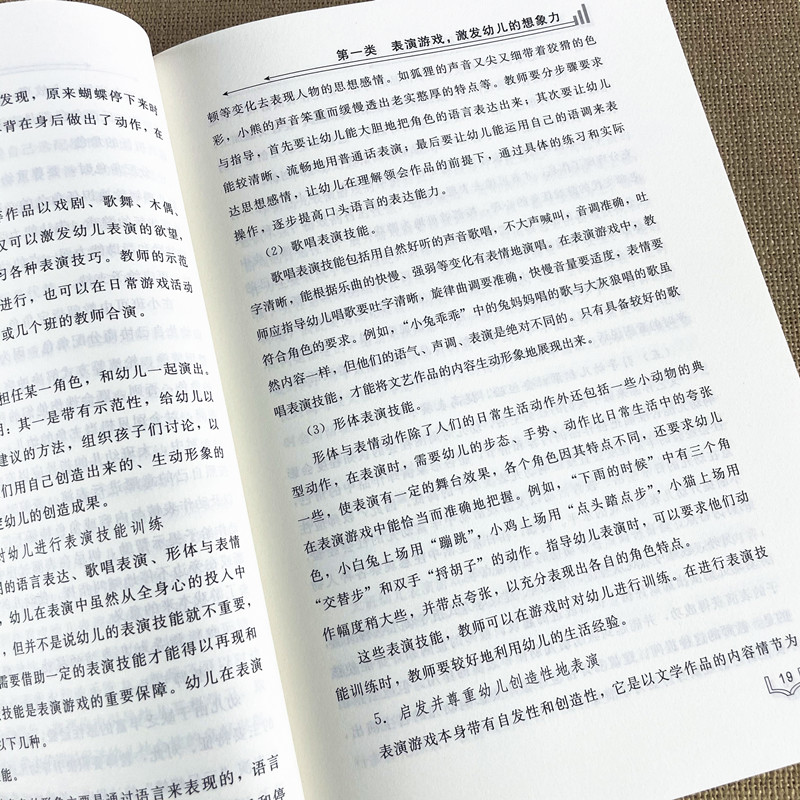 发现，原来蝴蝶停下来时
背在身后做出了动作，在
作品以戏剧、歌舞、木偶、
可以激发幼儿表演的欲望，
习各种表演技巧。教师的示范
进行，也可以在日常游戏活动
或几个班的教师合演。
担任某一角色，和幼儿一起演出。
：其一是带有示范性，给幼儿以
建议的方法，组织孩子们讨论，以
们用自己创造出来的、生动形象的
幼儿的创造成果。
对幼儿进行表演技能训练
的语言表达、歌唱表演、形体与表情
，幼儿在表演中虽然从全身心的投入中
，但并不是说幼儿的表演技能就不重要，
需要借助一定的表演技能才能得以再现和
技能是表演游戏的重要保障。幼儿在表演
以下几种。
能。
主要是通过语言来表现的，语言
和停
第一类 表演游戏，激发幼儿的想象力
顿等变化去表现人物的思想感情。如狐狸的声音又尖又细带着狡猾的色
彩，小熊的声音笨重而缓慢透出老实憨厚的特点等。教师要分步骤要求
与指导，首先要让幼儿能大胆地把角色的语言表达出来；其次要让幼儿
能较清晰、流畅地用普通话表演；最后要让幼儿能运用自己的语调来表
达思想感情，让幼儿在理解领会作品的前提下，通过具体的练习和实际
操作，逐步提高口头语言的表达能力。
（2）歌唱表演技能。
歌唱表演技能包括用自然好听的声音歌唱，不大声喊叫，音调准确，吐
字清晰，能根据乐曲的快慢、强弱等变化有表情地演唱。在表演游戏中，教
师应指导幼儿唱歌要吐字清晰，旋律曲调要准确，快慢音量要适度，表情要
符合角色的要求。例如，“小兔乖乖”中的兔妈妈唱的歌与大灰狼唱的歌虽
然内容一样，但他们的语气、声调、表演是绝对不同的。只有具备较好的歌
唱表演技能，才能将文艺作品的内容生动形象地展现出来。
（3）形体表演技能。
形体与表情动作除了人们的日常生活动作外还包括一些小动物的典
型动作，在表演时，需要幼儿的步态、手势、动作比日常生活中的夸张
一些，使表演有一定的舞台效果，各个角色因其特点不同，还要求幼儿
在表演游戏中能恰当而准确地把握。例如，“下雨的时候”中有三个角
色，小白兔上场用“蹦跳”，小鸡上场用“点头踏点步”，小猫上场用
“交替步”和双手“捋胡子”的动作。指导幼儿表演时，可以要求他们动
作幅度稍大些，并带点夸张，以充分表现出各自的角色特点。
这些表演技能，教师可以在游戏时对幼儿进行训练。在进行表演技
能训练时，教师要较好地利用幼儿的生活经验。
5．启发并尊重幼儿创造性地表演
表演游戏本身带有自发性和创造性，它是以文学作品的内容情节为
19